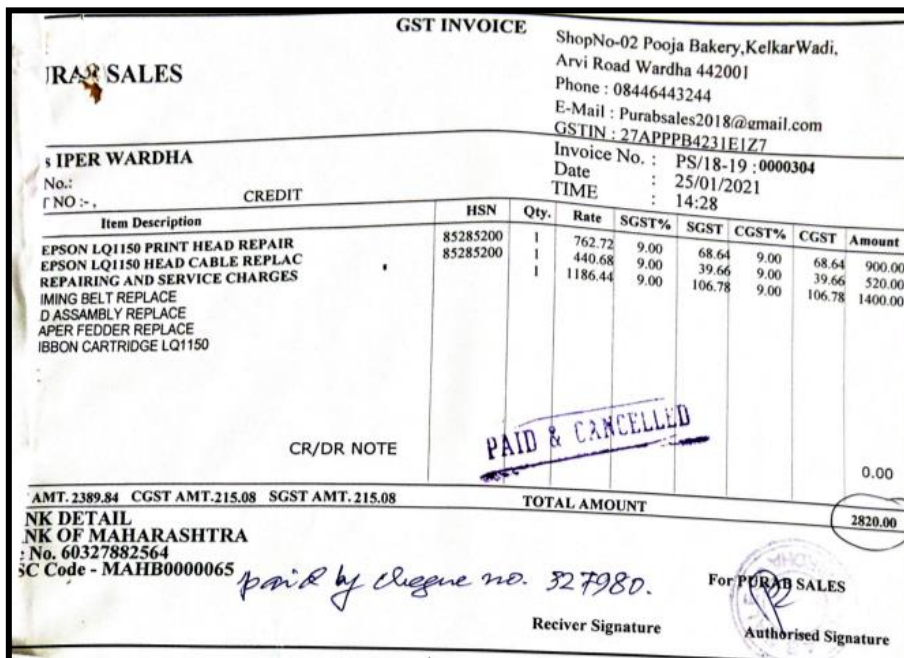 GST INVOICE
SALES
ShopNo-02 Pooja Bakery,KelkarWadi,
Arvi Road Wardha 442001
Phone : 08446443244
E-Mail : Purabsales2018@gmail.com
GSTIN : 27APPPB4231E1Z7
s IPER WARDHA
No.:
T NO :- ,
CREDIT
Invoice No. : PS/18-19 :0000304
Date : 25/01/2021
TIME : 14:28
Item Description HSN Qty. Rate SGST% SGST CGST% CGST Amount
EPSON LQ1150 PRINT HEAD REPAIR 85285200 1 762.72 9.00 68.64 9.00 68.64 900.00
EPSON LQ1150 HEAD CABLE REPLAC 85285200 1 440.68 9.00 39.66 9.00 39.66 520.00
REPAIRING AND SERVICE CHARGES 1 1186.44 9.00 106.78 9.00 106.78 1400.00
IMING BELT REPLACE
D ASSAMBLY REPLACE
APER FEDDER REPLACE
IBBON CARTRIDGE LQ1150
PAID & CANCELLED
CR/DR NOTE 0.00
AMT. 2389.84 CGST AMT.215.08 SGST AMT. 215.08 TOTAL AMOUNT 2820.00
NK DETAIL
NK OF MAHARASHTRA
No. 60327882564
SC Code - MAHB0000065
paid by cheque no. 327980.
For PURAB SALES
Reciver Signature
Authorised Signature